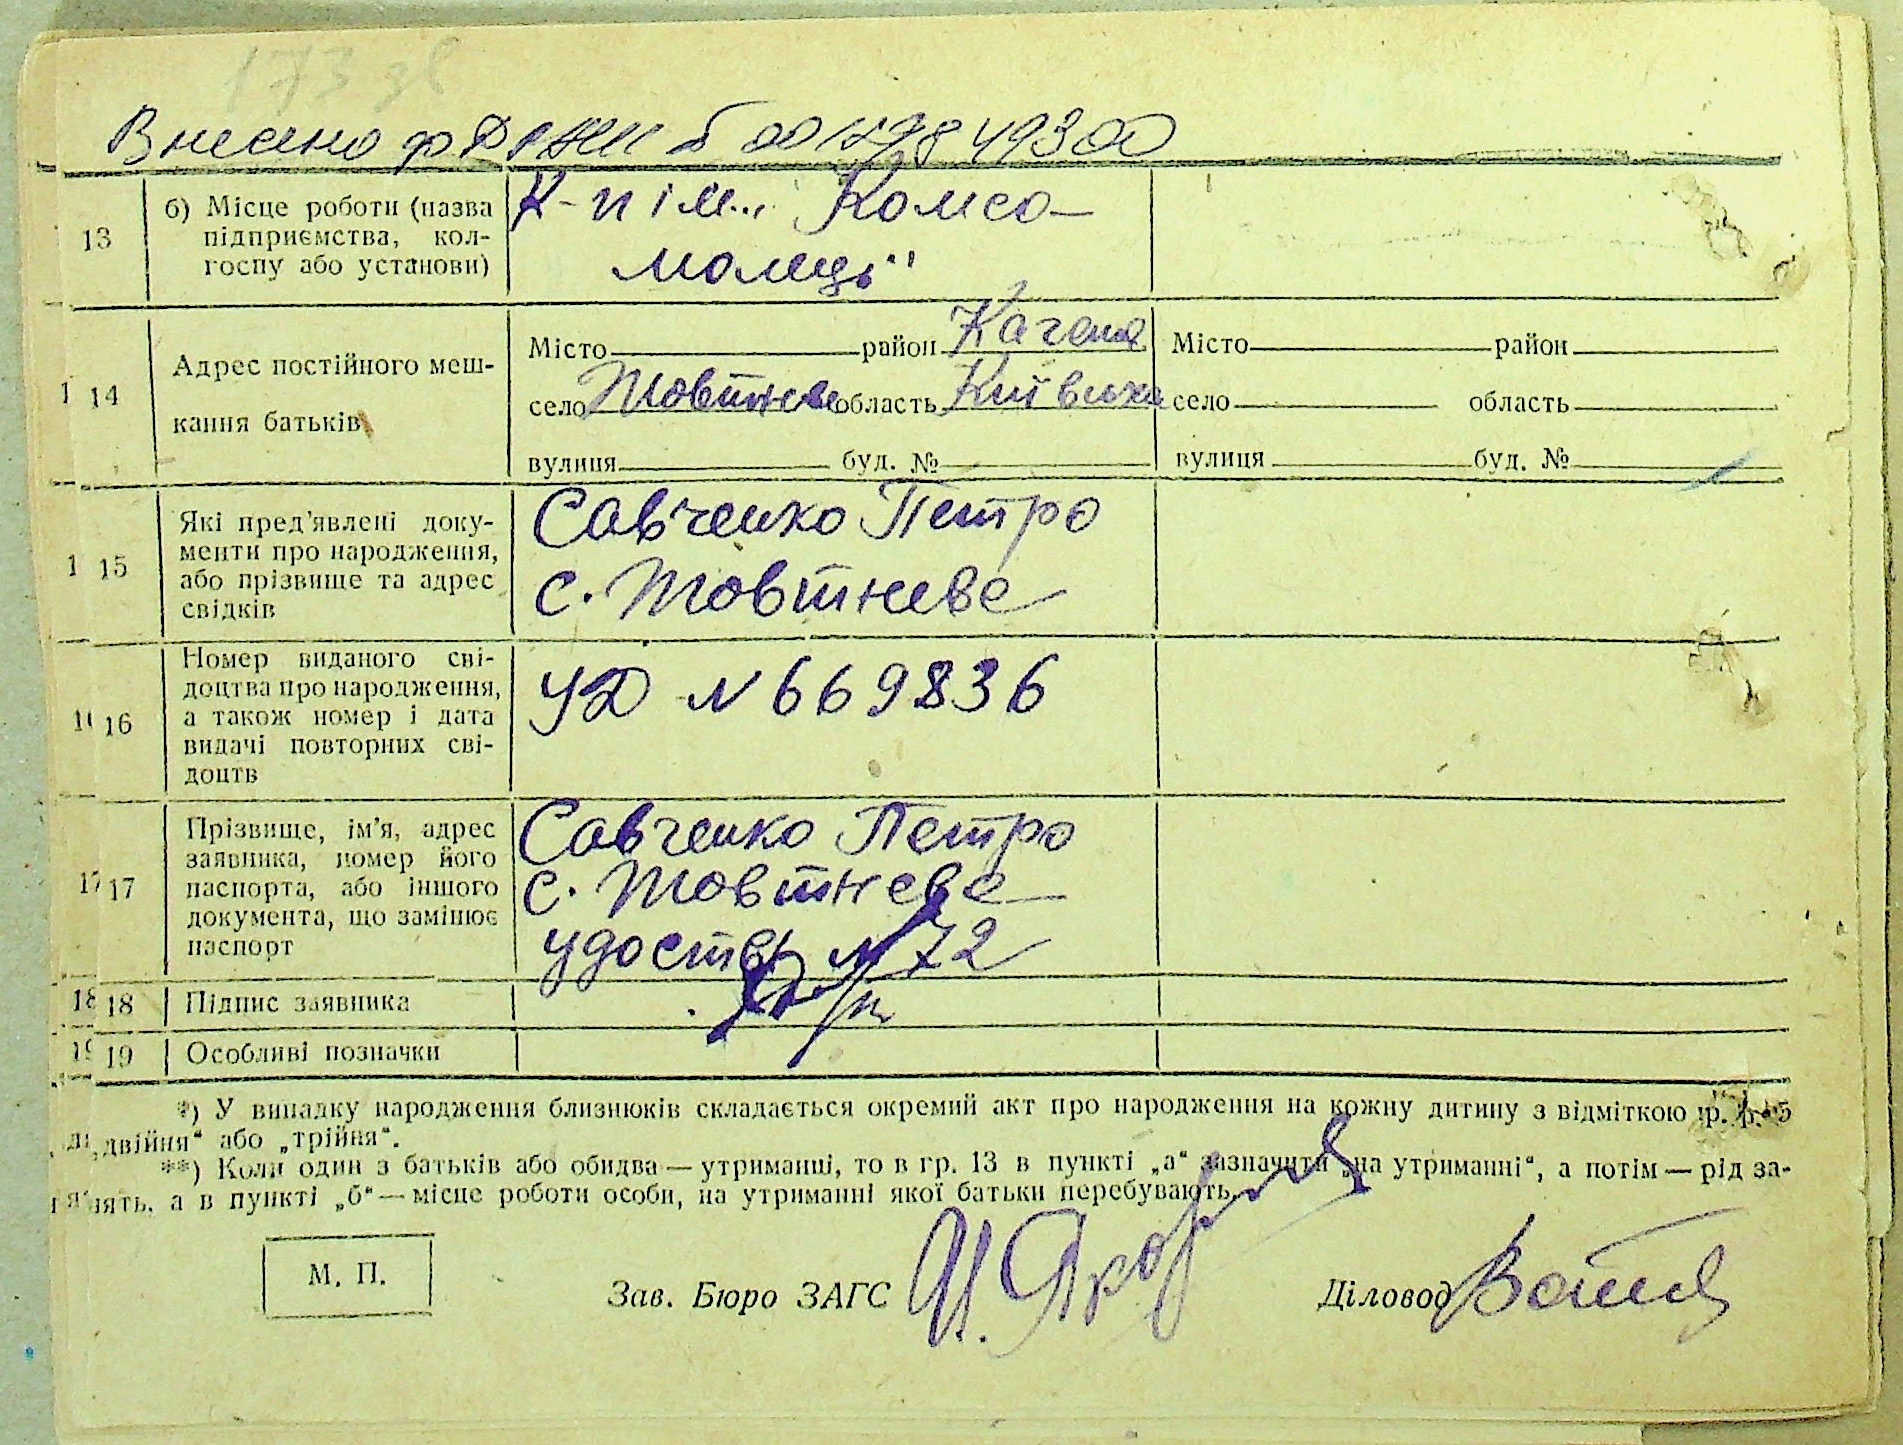 173 зв
Внесено ф ДРАЦС б 00179849300
13 б) Місце роботи (назва К-п ім. „Комсо-
підприємства, кол- молець"
госпу або установи)
Місто район Кагана Місто район
14 Адрес постійного меш- село Жовтневе область Київська село область
кання батьків
вулиця буд. № вулиця буд. №
15 Які пред'явлені доку- Савченко Петро
менти про народження,
або прізвище та адрес с. Жовтневе
свідків
16 Номер виданого сві-
доцтва про народження, УД № 669836
а також номер і дата
видачі повторних сві-
доцтв
17 Прізвище, ім'я, адрес Савченко Петро
заявника, номер його
паспорта, або іншого с. Жовтневе
документа, що замінює
паспорт удостов № 72
18 Підпис заявника
19 Особливі позначки
*) У випадку народження близнюків складається окремий акт про народження на кожну дитину з відміткою
„двійня" або „трійня".
**) Коли один з батьків або обидва — утриманці, то в гр. 13 в пункті „а" зазначити „на утриманні", а потім — рід за-
нять, а в пункті „б" — місце роботи особи, на утриманні якої батьки перебувають.
М. П.
Зав. Бюро ЗАГС Діловод